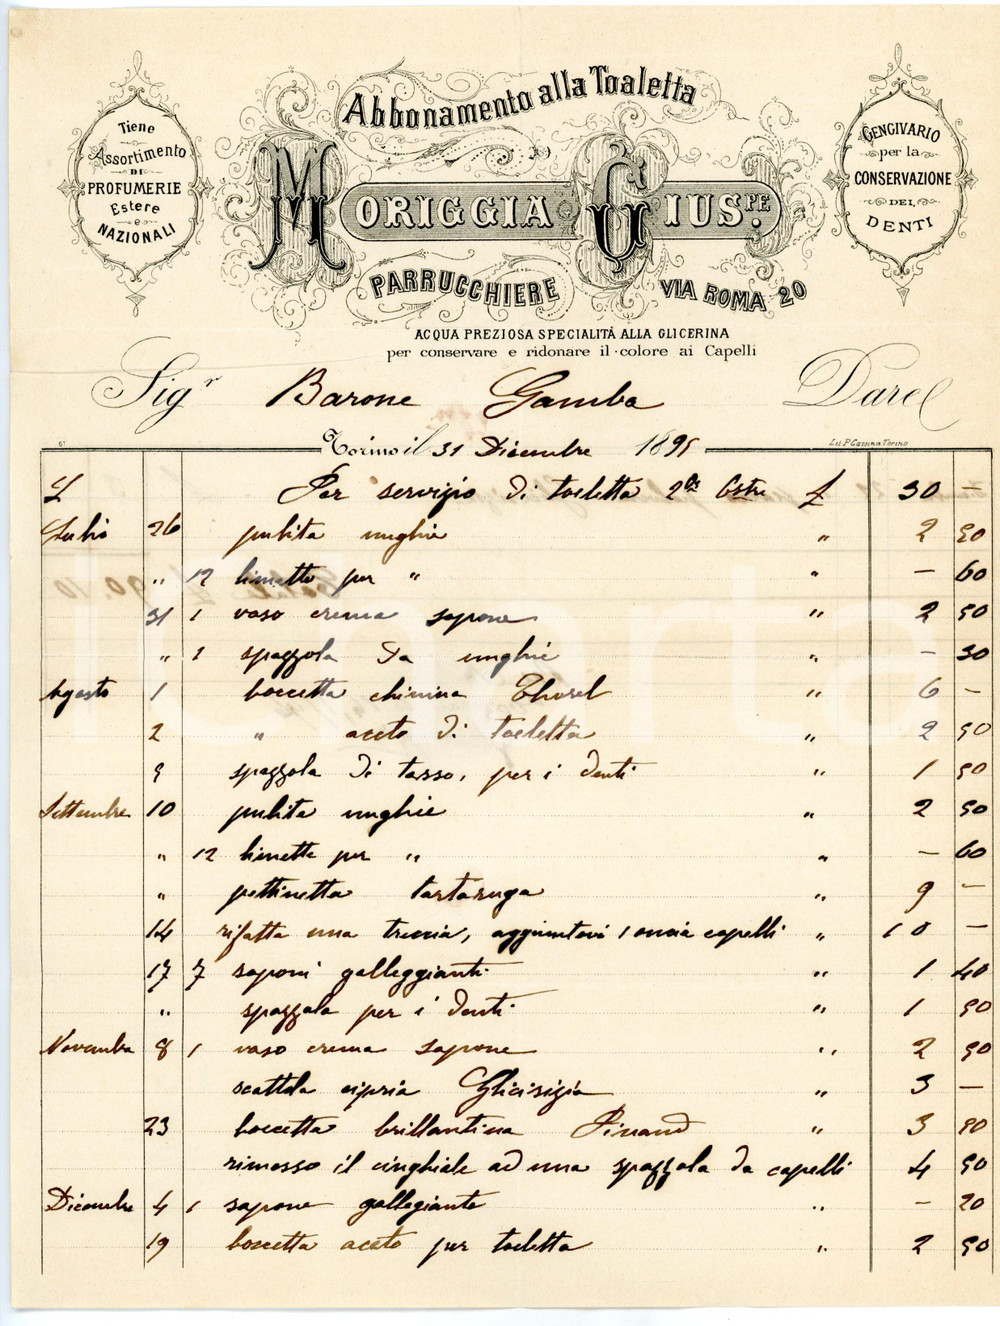 Abbonamento alla Toaletta
MORIGGIA GIUS.PE
PARRUCCHIERE VIA ROMA 20
Tiene
Assortimento
DI
PROFUMERIE
Estere
e
NAZIONALI
GENGIVARIO
per la
CONSERVAZIONE
DEI
DENTI
ACQUA PREZIOSA SPECIALITÀ ALLA GLICERINA
per conservare e ridonare il colore ai Capelli
Sigr Barone Gamba Dare
61 Torino il 31 Dicembre 1891 Lit. P. Cassina Torino
Per servizio di toeletta 2do £ 30 —
Luglio 26 pulita unghie " 2 50
" 12 limette per " " — 60
31 1 vaso crema sapone " 2 50
" 1 spazzola da unghie " — 30
Agosto 1 boccetta chinina " 6 —
2 " aceto di toeletta " 2 50
9 spazzola di tasso, per i denti " 1 50
Settembre 10 pulita unghie " 2 50
" 12 limette per " " — 60
" pettinetta tartaruga " 9 —
14 rifatta una treccia, aggiuntovi 1 oncia capelli " 10 —
17 7 saponi galleggianti " 1 40
" spazzola per i denti " 1 50
Novembre 8 1 vaso crema sapone " 2 50
scattola cipria " 3 —
23 boccetta brillantina Pinaud " 3 50
rimesso il cinghiale ad una spazzola da capelli 4 50
Dicembre 4 1 sapone gallegiante " — 20
19 boccetta aceto per toeletta " 2 50